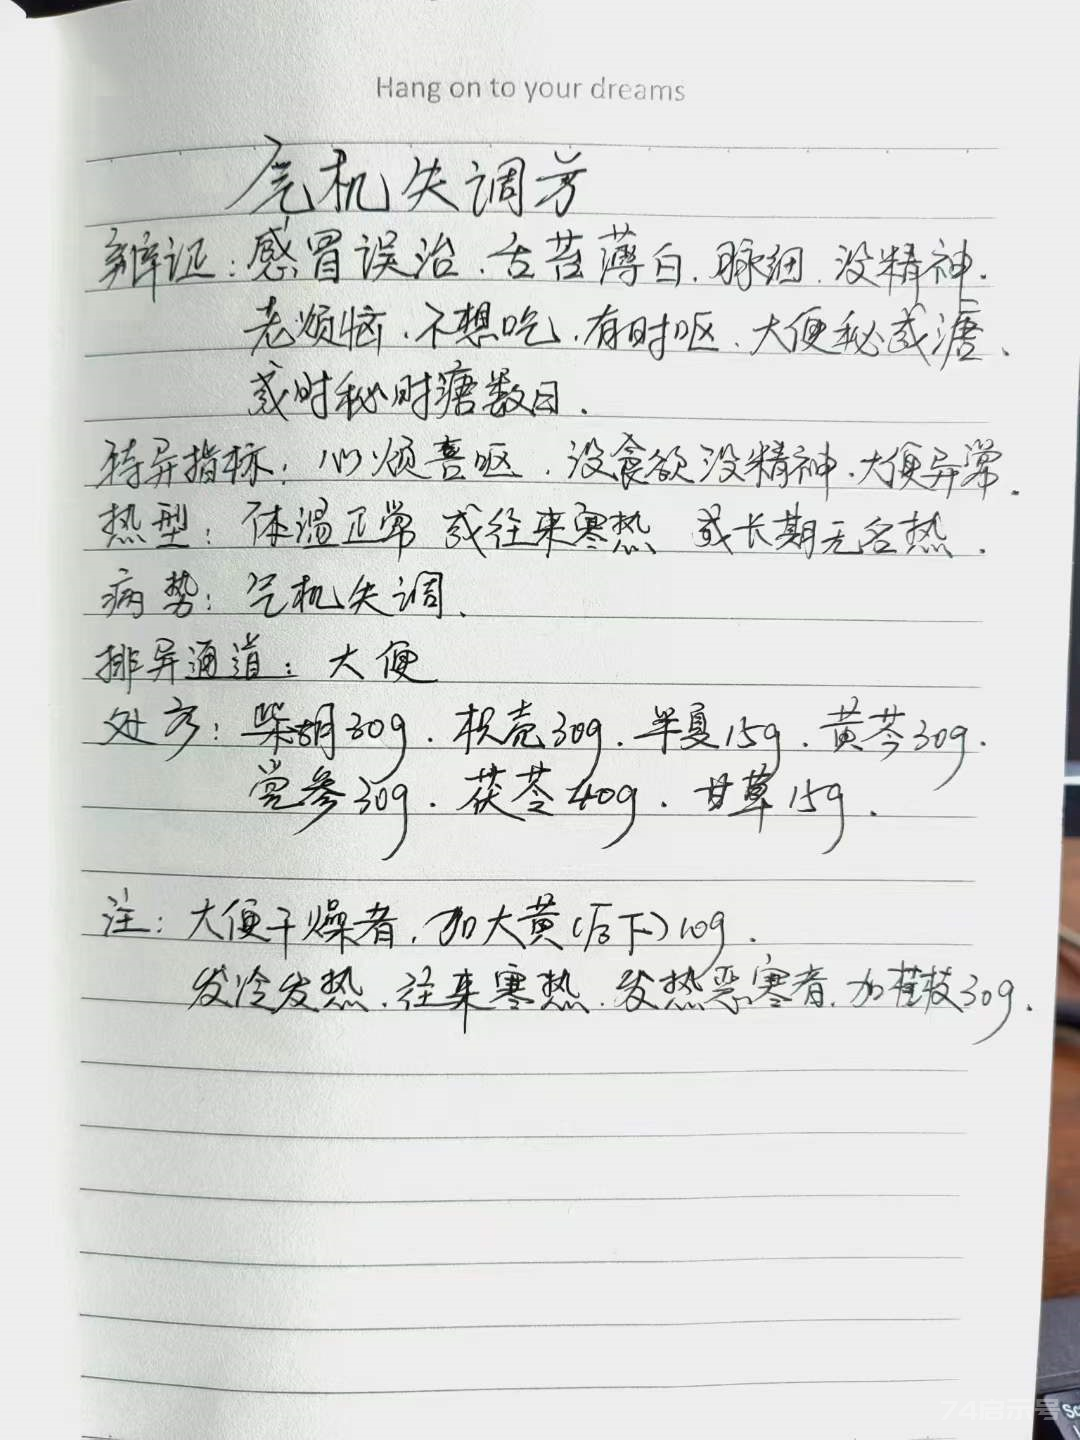 Hang on to your dreams
气机失调方
辨证：感冒误治、舌苔薄白、脉细、没精神、
老烦恼、不想吃、有时呕、大便秘或溏、
或时秘时溏数日.
特异指标：心烦喜呕、没食欲没精神、大便异常.
热型：体温正常 或往来寒热 或长期无名热.
病势：气机失调、
排异通道：大便
处方：柴胡30g、枳壳30g、半夏15g、黄芩30g、
党参30g、茯苓40g、甘草15g.
注：大便干燥者，加大黄(后下)10g.
发冷发热、往来寒热、发热恶寒者，加桂枝30g.
74启示号